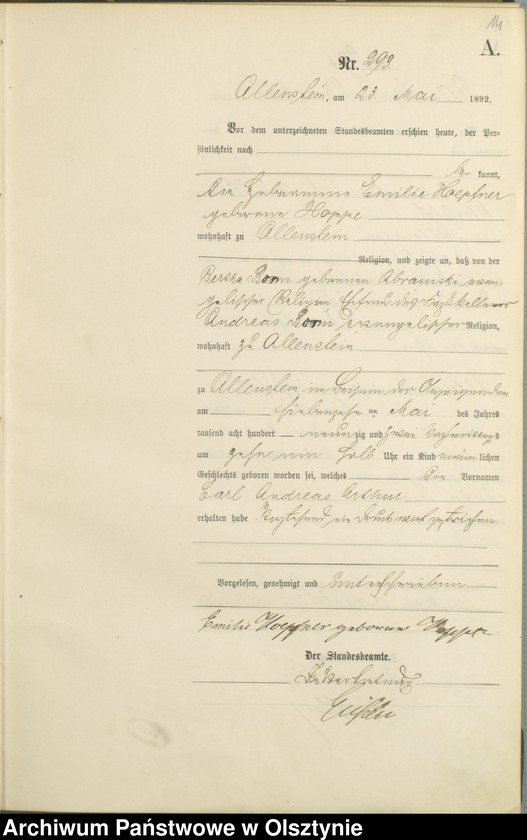 14
A.
Nr. 293.
Allenstein, am 23. Mai 1892.
Vor dem unterzeichneten Standesbeamten erschien heute, der Per-
sönlichkeit nach
be kannt,
die Hebamme Emilie Hoepfner
geborene Hoppe
wohnhaft zu Allenstein
Religion, und zeigte an, daß von der
Bertha Born geborenen Abramski evan-
gelischer Religion, Ehefrau des
Andreas Born evangelischer Religion,
wohnhaft zu Allenstein
zu Allenstein im Beisein der Anzeigenden
am siebenzehnten Mai des Jahres
tausend acht hundert neunzig und zwei Vormittags
um zehn ein halb Uhr ein Kind männlichen
Geschlechts geboren worden sei, welches die Vornamen
Carl Andreas Arthur
erhalten habe. Vorstehend ein Druckwort gestrichen.
Vorgelesen, genehmigt und unterschrieben
Emilie Hoepfner geborene Hoppe
Der Standesbeamte.
In Vertretung
Archiwum Państwowe w Olsztynie